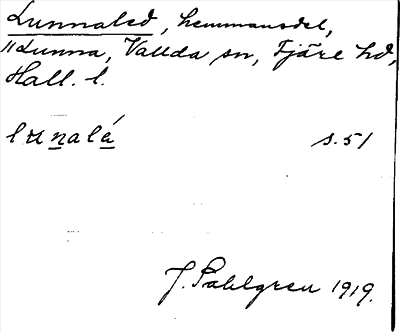 Lunnaled, hemmansdel,
" Lunna, Vallda sn, Fjäre hd,
Hall. l.
lunalá s. 51
J. Sahlgren 1919.